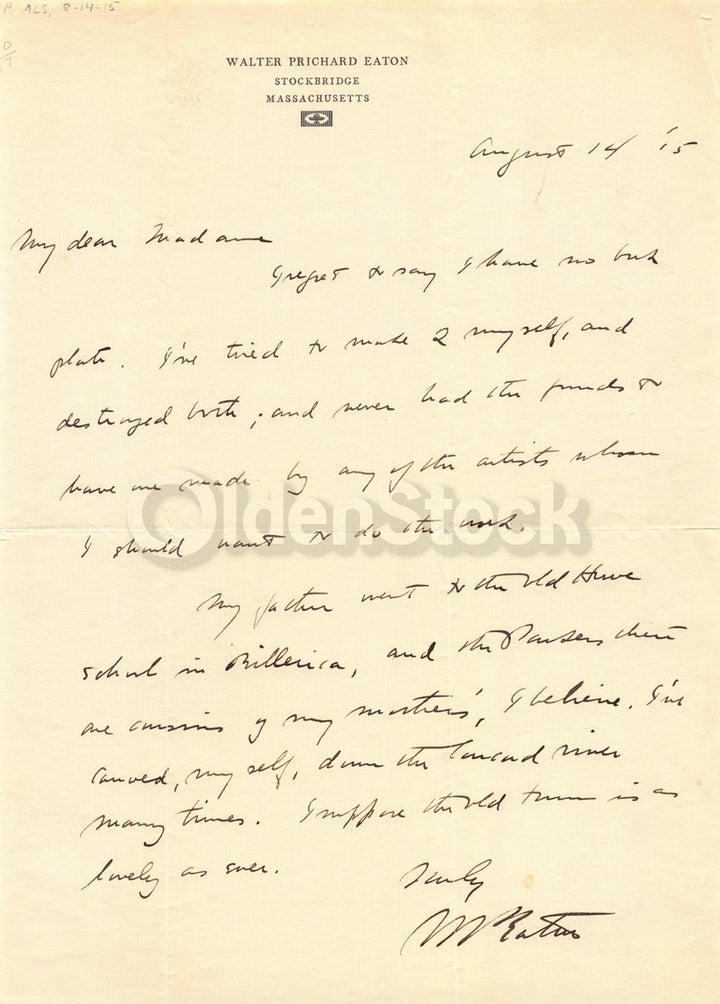 P. ALS, 8-14-15
D/T
WALTER PRICHARD EATON
STOCKBRIDGE
MASSACHUSETTS
August 14 '15
My dear Madame
I regret to say I have no book
plate. I've tried to make 2 myself, and
destroyed both; and never had the funds to
have one made by any of the artists whom
I should want to do the work.
My father went to the old Howe
school in Billerica, and the there
are cousins of my mother's, I believe. I've
canoed, myself, down the Concord river
many times. I suppose the old town is as
lovely as ever.
WPEaton
OldenStock